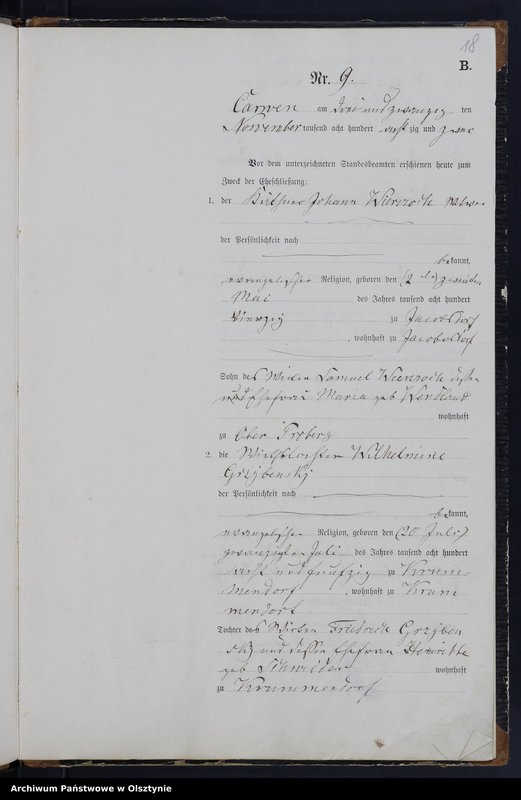 18
B.
Nr. 9.
Carwen am drei und zwanzig ten
November tausend acht hundert acht zig und zwei
Vor dem unterzeichneten Standesbeamten erschienen heute zum
Zweck der Eheschließung:
1. der Käthner Johann Wierczoch
der Persönlichkeit nach
bekannt,
evangelischer Religion, geboren den (2 ) zweiten
Mai des Jahres tausend acht hundert
vierzig zu Jacobsdorf
, wohnhaft zu Jacobsdorf
Sohn des Wirten Samuel Wierczoch
und Ehefrau Maria geb
wohnhaft
zu Ober
2. die Wirthstochter Wilhelmine
Grzybensky
der Persönlichkeit nach
bekannt,
evangelischer Religion, geboren den (20 Juli)
zwanzigsten Juli des Jahres tausend acht hundert
acht und fuenfzig zu Krum-
mendorf , wohnhaft zu Krum
mendorf
Tochter des Wirten Friedrich Grzyben
sky und dessen Ehefrau Henriette
geb wohnhaft
zu Krummendorf
Archiwum Państwowe w Olsztynie